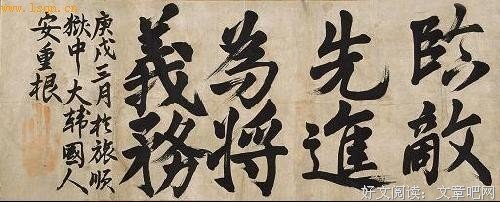 www.lsqn.cn
臨敵
先進
為將
義務
庚戌三月於旅順
獄中 大韓國人
安重根
好文阅读：文章吧网